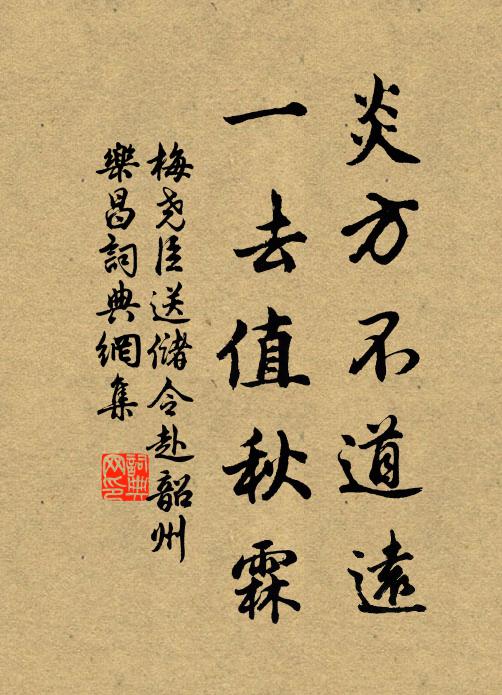 炎方不道遠
一去值秋霖
梅尧臣送储令赴韶州
樂昌詞典網集
詞典网印